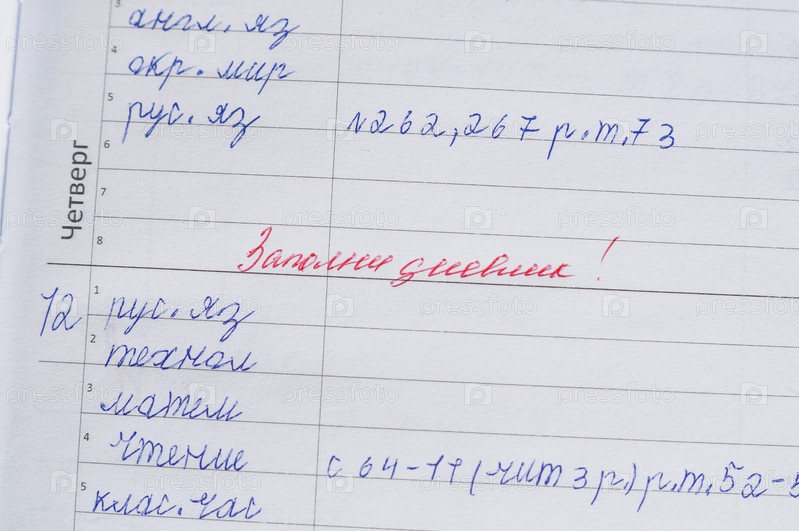 3 англ. яз
4 окр. мир
5 рус. яз N262, 267 р.т. 73
6
Четверг
7
8
Заполни дневник!
12
1 рус. яз
2 технол
3 матем
4 чтение с 64-71 (чит 3 р.) р.т. 52-5
5 клас. час
pressfoto